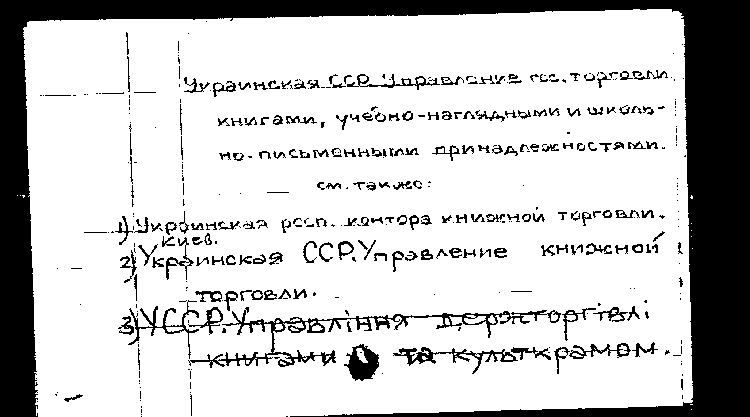 Украинская ССР. Управление гос. торговли
книгами, учебно-наглядными и школь-
но-письменными принадлежностями.
см. также:
1) Украинская росп. контора книжной торговли.
Киев.
2) Украинская ССР. Управление книжной
торговли.
3) УССР. Управління держторгівлі
книгами та культкрамом.